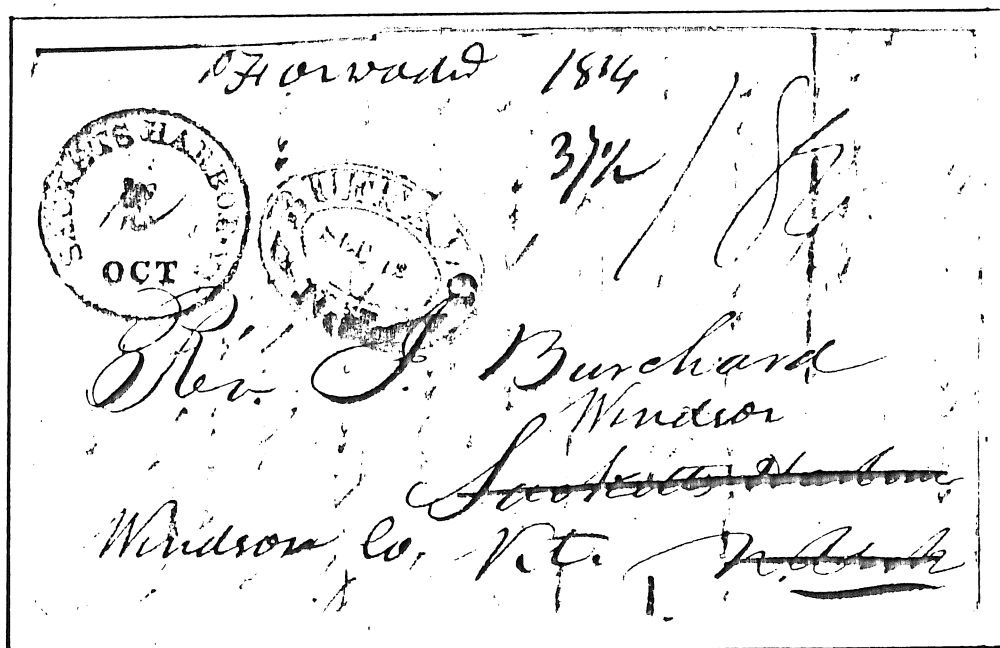 Forwarded 18¾
37½
SACKETS HARBOR
OCT
SEP 12
Rev. J. Burchard
Windsor
Sacketts Harbour
Windsor Co. V.t. N. York